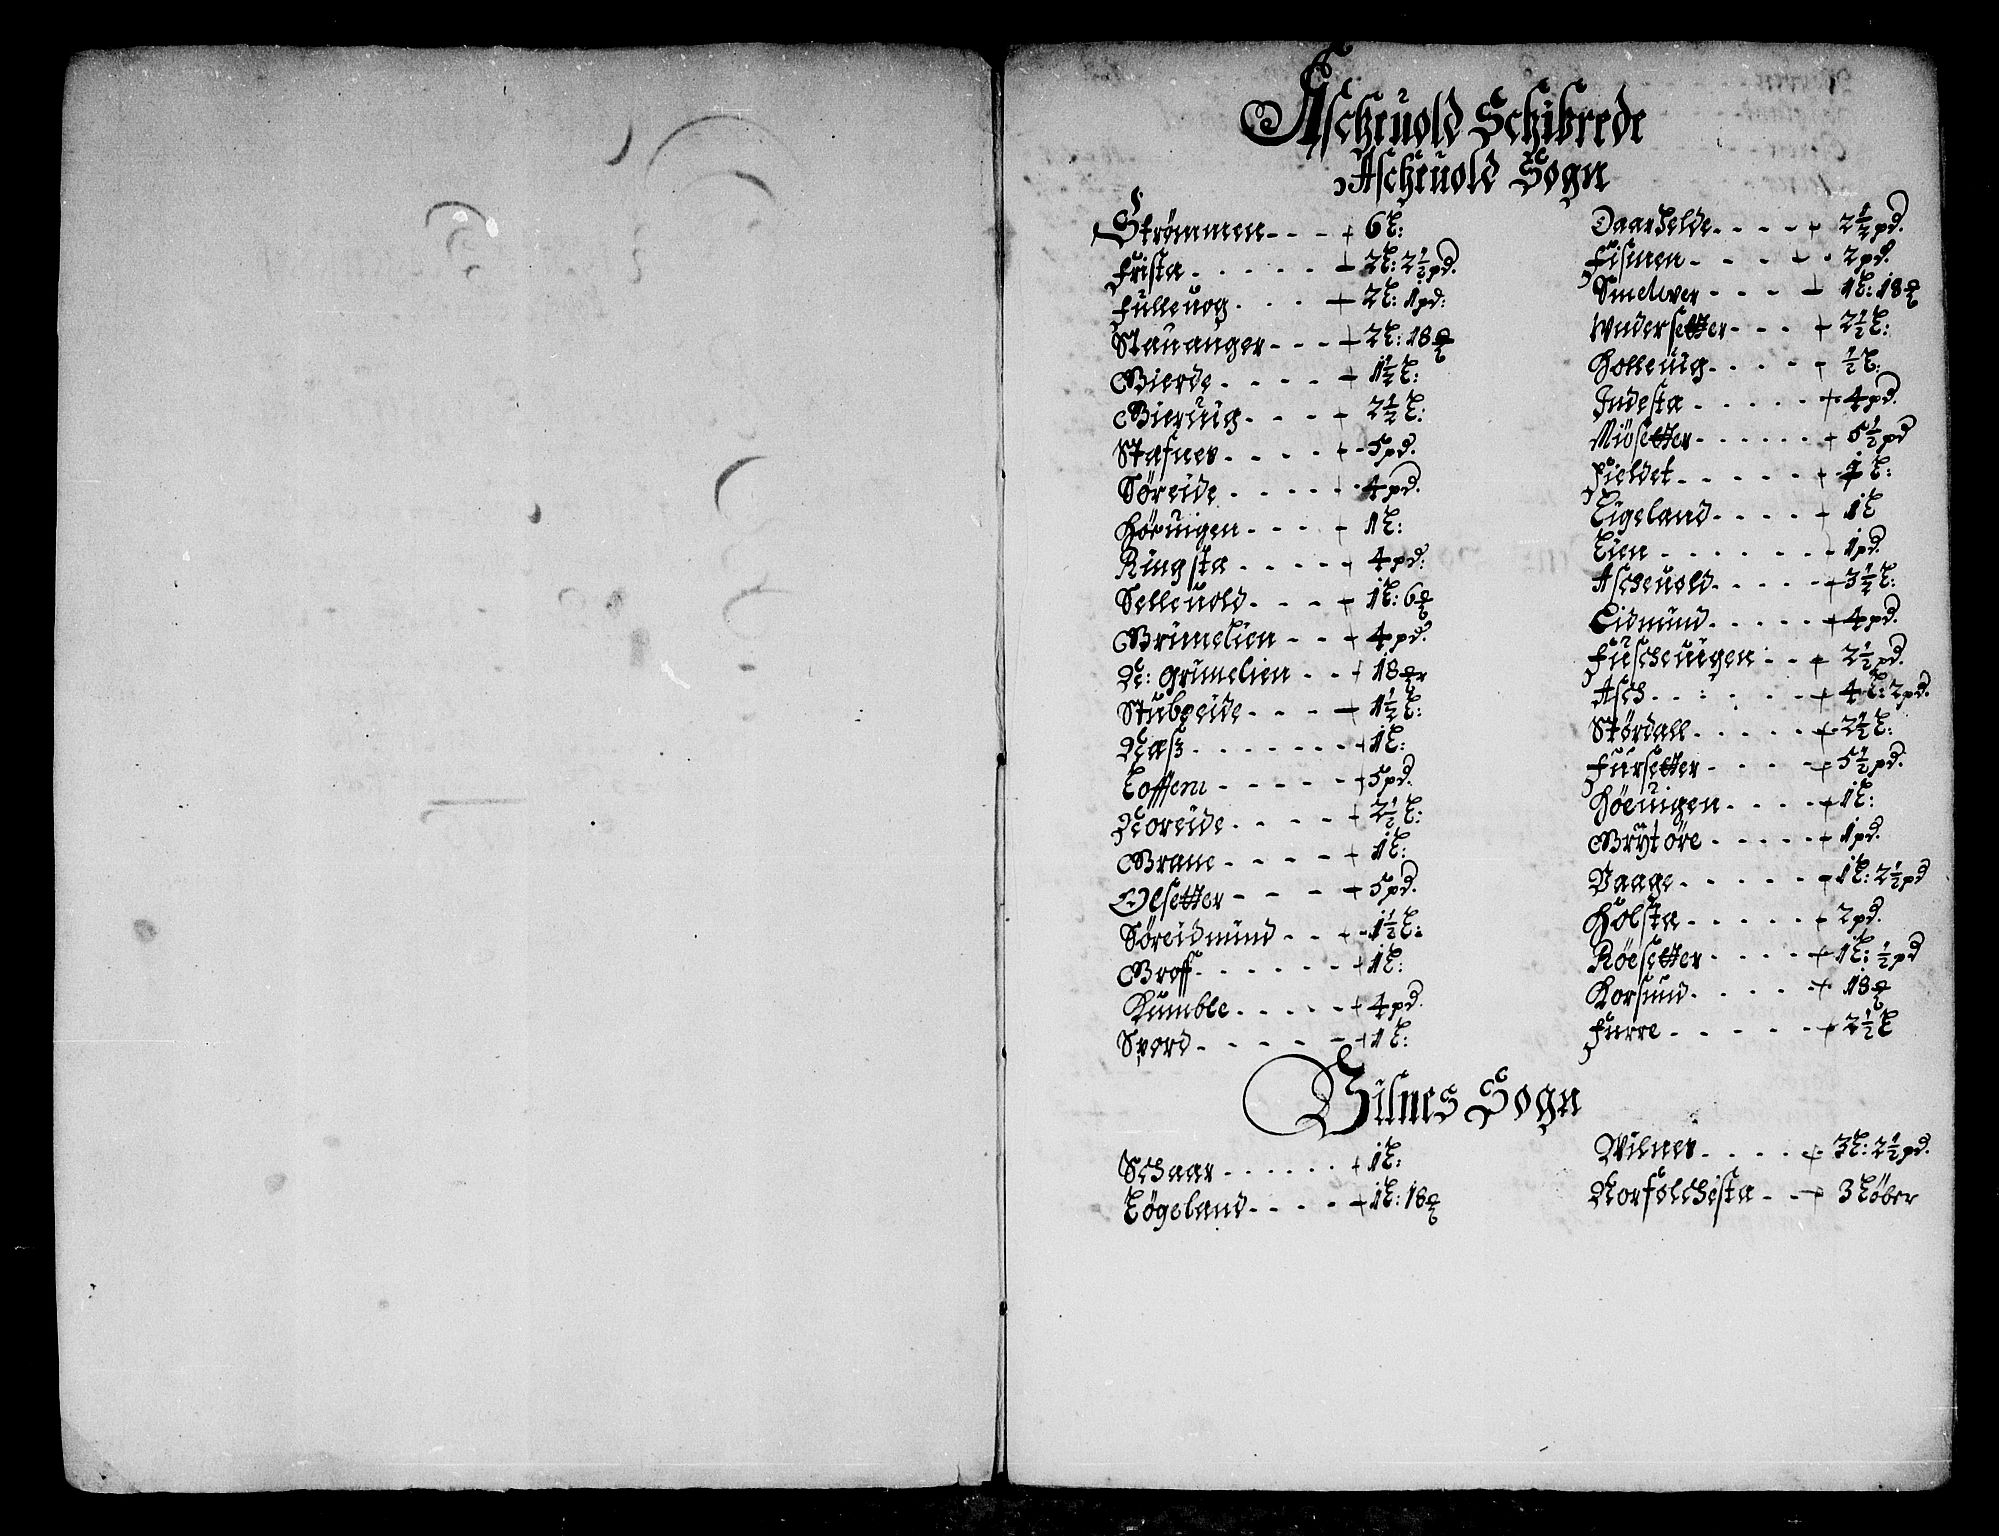 Ascheuold Schibrede
Ascheuold Sogn
Strømmen - - - + 6 L:
Frista - - - - - - 2 L: 2½ pd.
Fülleuog - - - - + 2 L: 1 pd:
Stauanger - - - + 2 L: 18
Bierde - - - - - + 1½ L:
Bieruig - - - - + 2½ L:
Stafnes - - - - + 5 pd.
Søreide - - - - - 4 pd.
Høeuigen - - - - + 1 L:
Ringsta - - - - - + 4 pd:
Selleuold - - - + 1 L: 6
Brimelien - - - + 4 pd.
N: Grimelien - - + 18
Stubseide - - - + 1½ L:
Næsz - - - - - - - + 1 L:
Loffem - - - - - + 5 pd.
Noreide - - - - + 2½ L:
Grane - - - - - + 1 L:
Olsetter - - - - + 5 pd.
Søreidmünd - - + 1½ L:
Groff - - - - - - + 1 L:
Kumble - - - - - + 4 pd.
Svord - - - - - - + 1 L:
Daarielde - - - - + 2½ pd.
Fisnen - - - - + 2 pd.
Smelver - - - - + 1 L: 18
Wndersetter - - - + 2½ L:
Holleuig - - - - + ½ L:
Indesta - - - - - + 4 pd.
Miösetter - - - - - + 5½ pd
Fieldet - - - - - + 1 L:
Eigeland - - - - - + 1 L
Lien - - - - - - + 1 pd.
Ascheuold - - - - - + 3½ L:
Eidmünd - - - - - + 4 pd.
Füscheuigen - - + 2½ pd.
Asch - - - - - - + 4 L: 2 pd.
Størdall - - - - - + 2½ L:
Fürsetter - - - - + 5½ pd.
Høeuigen - - - - + 1 L:
Brÿtøre - - - - - + 1 pd.
Vaage - - - - - - + 1 L: 2½ pd
Holsta - - - - - - + 2 pd.
Røesetter - - - - + 1 L: ½ pd
Korsund - - - - - + 18
Furre - - - - - - + 2½ L
Vilnes Sogn
Schaar - - - - - - + 1 L:
Løgeland - - - - - + 1 L: 18
Wilnes - - - - - + 3 L: 2½ pd.
Norfolchesta - - + 3 Løber